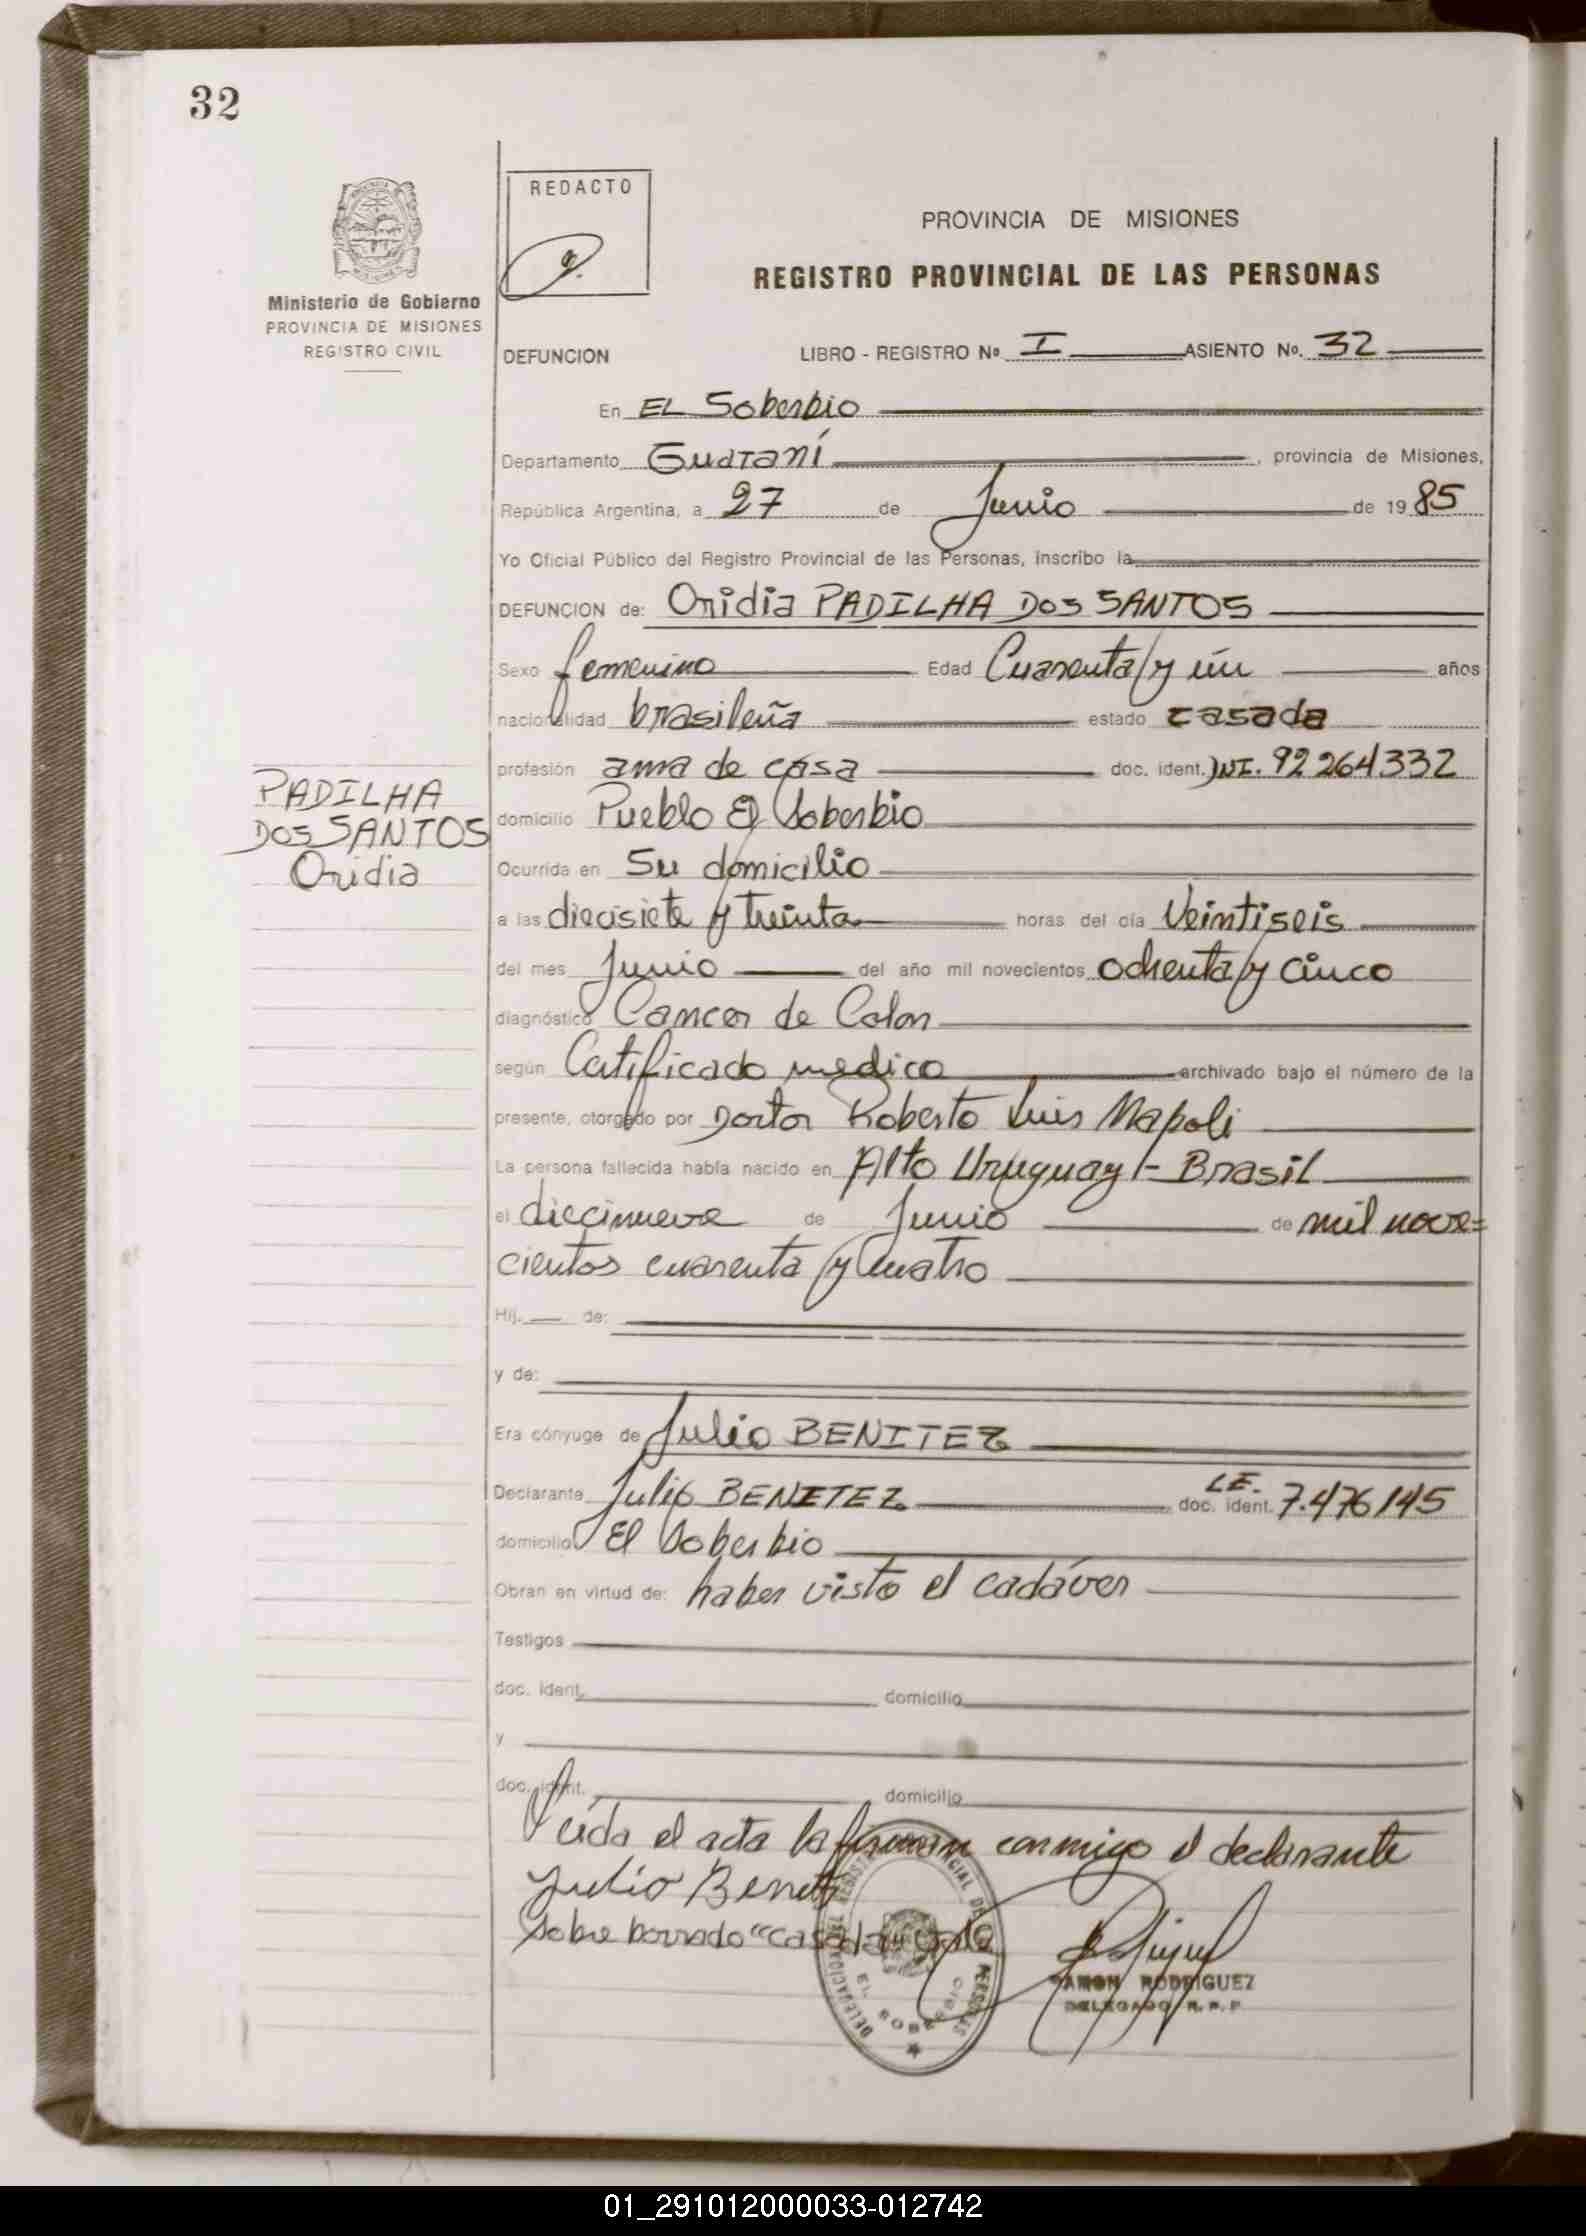 32
REDACTO
PROVINCIA DE MISIONES
REGISTRO PROVINCIAL DE LAS PERSONAS
Ministerio de Gobierno
PROVINCIA DE MISIONES
REGISTRO CIVIL
DEFUNCION LIBRO - REGISTRO Nº I ASIENTO Nº. 32
En EL Soberbio
Departamento Guaraní, provincia de Misiones,
República Argentina, a 27 de Junio de 1985
Yo Oficial Público del Registro Provincial de las Personas, inscribo la
DEFUNCION de: Oridia PADILHA DOS SANTOS
Sexo femenino Edad Cuarenta y ún años
nacionalidad brasileña estado casada
profesión ama de casa doc. ident. DNI. 92264332
PADILHA
DOS SANTOS
Oridia
domicilio Pueblo El Soberbio
Ocurrida en Su domicilio
a las diecisiete y treinta horas del día Veintiseis
del mes Junio del año mil novecientos ochenta y cinco
diagnóstico Cancer de Colon
según Certificado medico archivado bajo el número de la
presente, otorgado por Doctor Roberto Luis Napoli
La persona fallecida había nacido en Alto Uruguay - Brasil
el diecinueve de Junio de mil nove=
cientos cuarenta y cuatro
Hij. de:
y de:
Era cónyuge de Julio BENITEZ
Declarante Julio BENITEZ doc. ident. L.E. 7.476145
domicilio El Soberbio
Obran en virtud de: haber visto el cadáver
Testigos
doc. ident. domicilio
y
doc. ident. domicilio
Leída el acta la firman conmigo el declarante
Julio Benitez
Sobre borrado "casada" vale
DELEGACION DEL REGISTRO PROVINCIAL DE LAS PERSONAS
EL SOBERBIO
RAMON RODRIGUEZ
DELEGADO R. P. P.
01_291012000033-012742